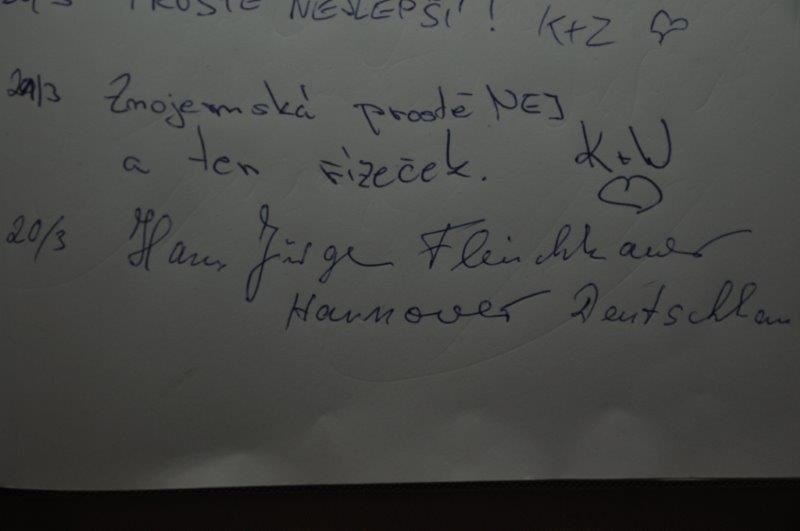 PROSTĚ NEJLEPŠÍ! K+Z
20/3 Znojemská prostě NEJ
a ten řízeček. K+W
20/3 Hans Jürgen Fleischhauer
Hannover Deutschlan